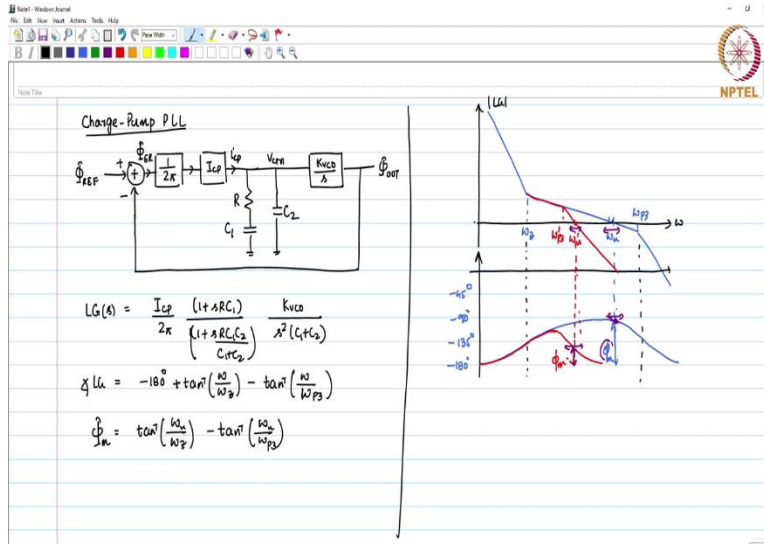 Note1 - Windows Journal
File Edit View Insert Actions Tools Help
Page Width
B I
NPTEL
Note Title
Charge-Pump PLL
Φ̂REF + − Φ̂ER 1/2π ICP iCP Vctrl KVCO/s Φ̂OUT
R
C1
C2
LG(s) = ICP/2π (1+sRC1)/(1+sRC1C2/(C1+C2)) KVCO/s²(C1+C2)
∡LG = -180° + tan⁻¹(ω/ωz) - tan⁻¹(ω/ωp3)
Φ̂m = tan⁻¹(ωu/ωz) - tan⁻¹(ωu/ωp3)
|LG|
ωz ω'p3 ω'u ωu ωp3 ω
-45°
-90°
-135°
-180°
Φ'm Φm